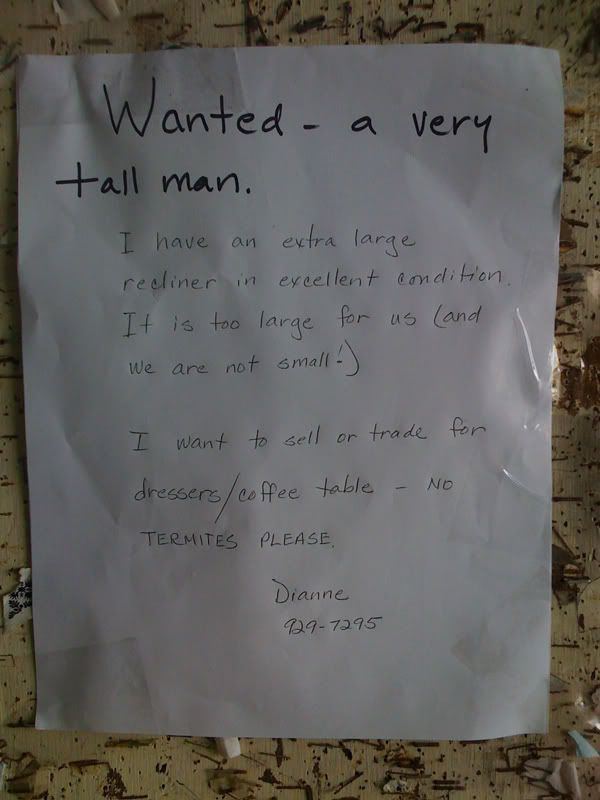 Wanted - a very
tall man.
I have an extra large
recliner in excellent condition.
It is too large for us (and
we are not small!)
I want to sell or trade for
dressers/coffee table - NO
TERMITES PLEASE.
Dianne
929-7295